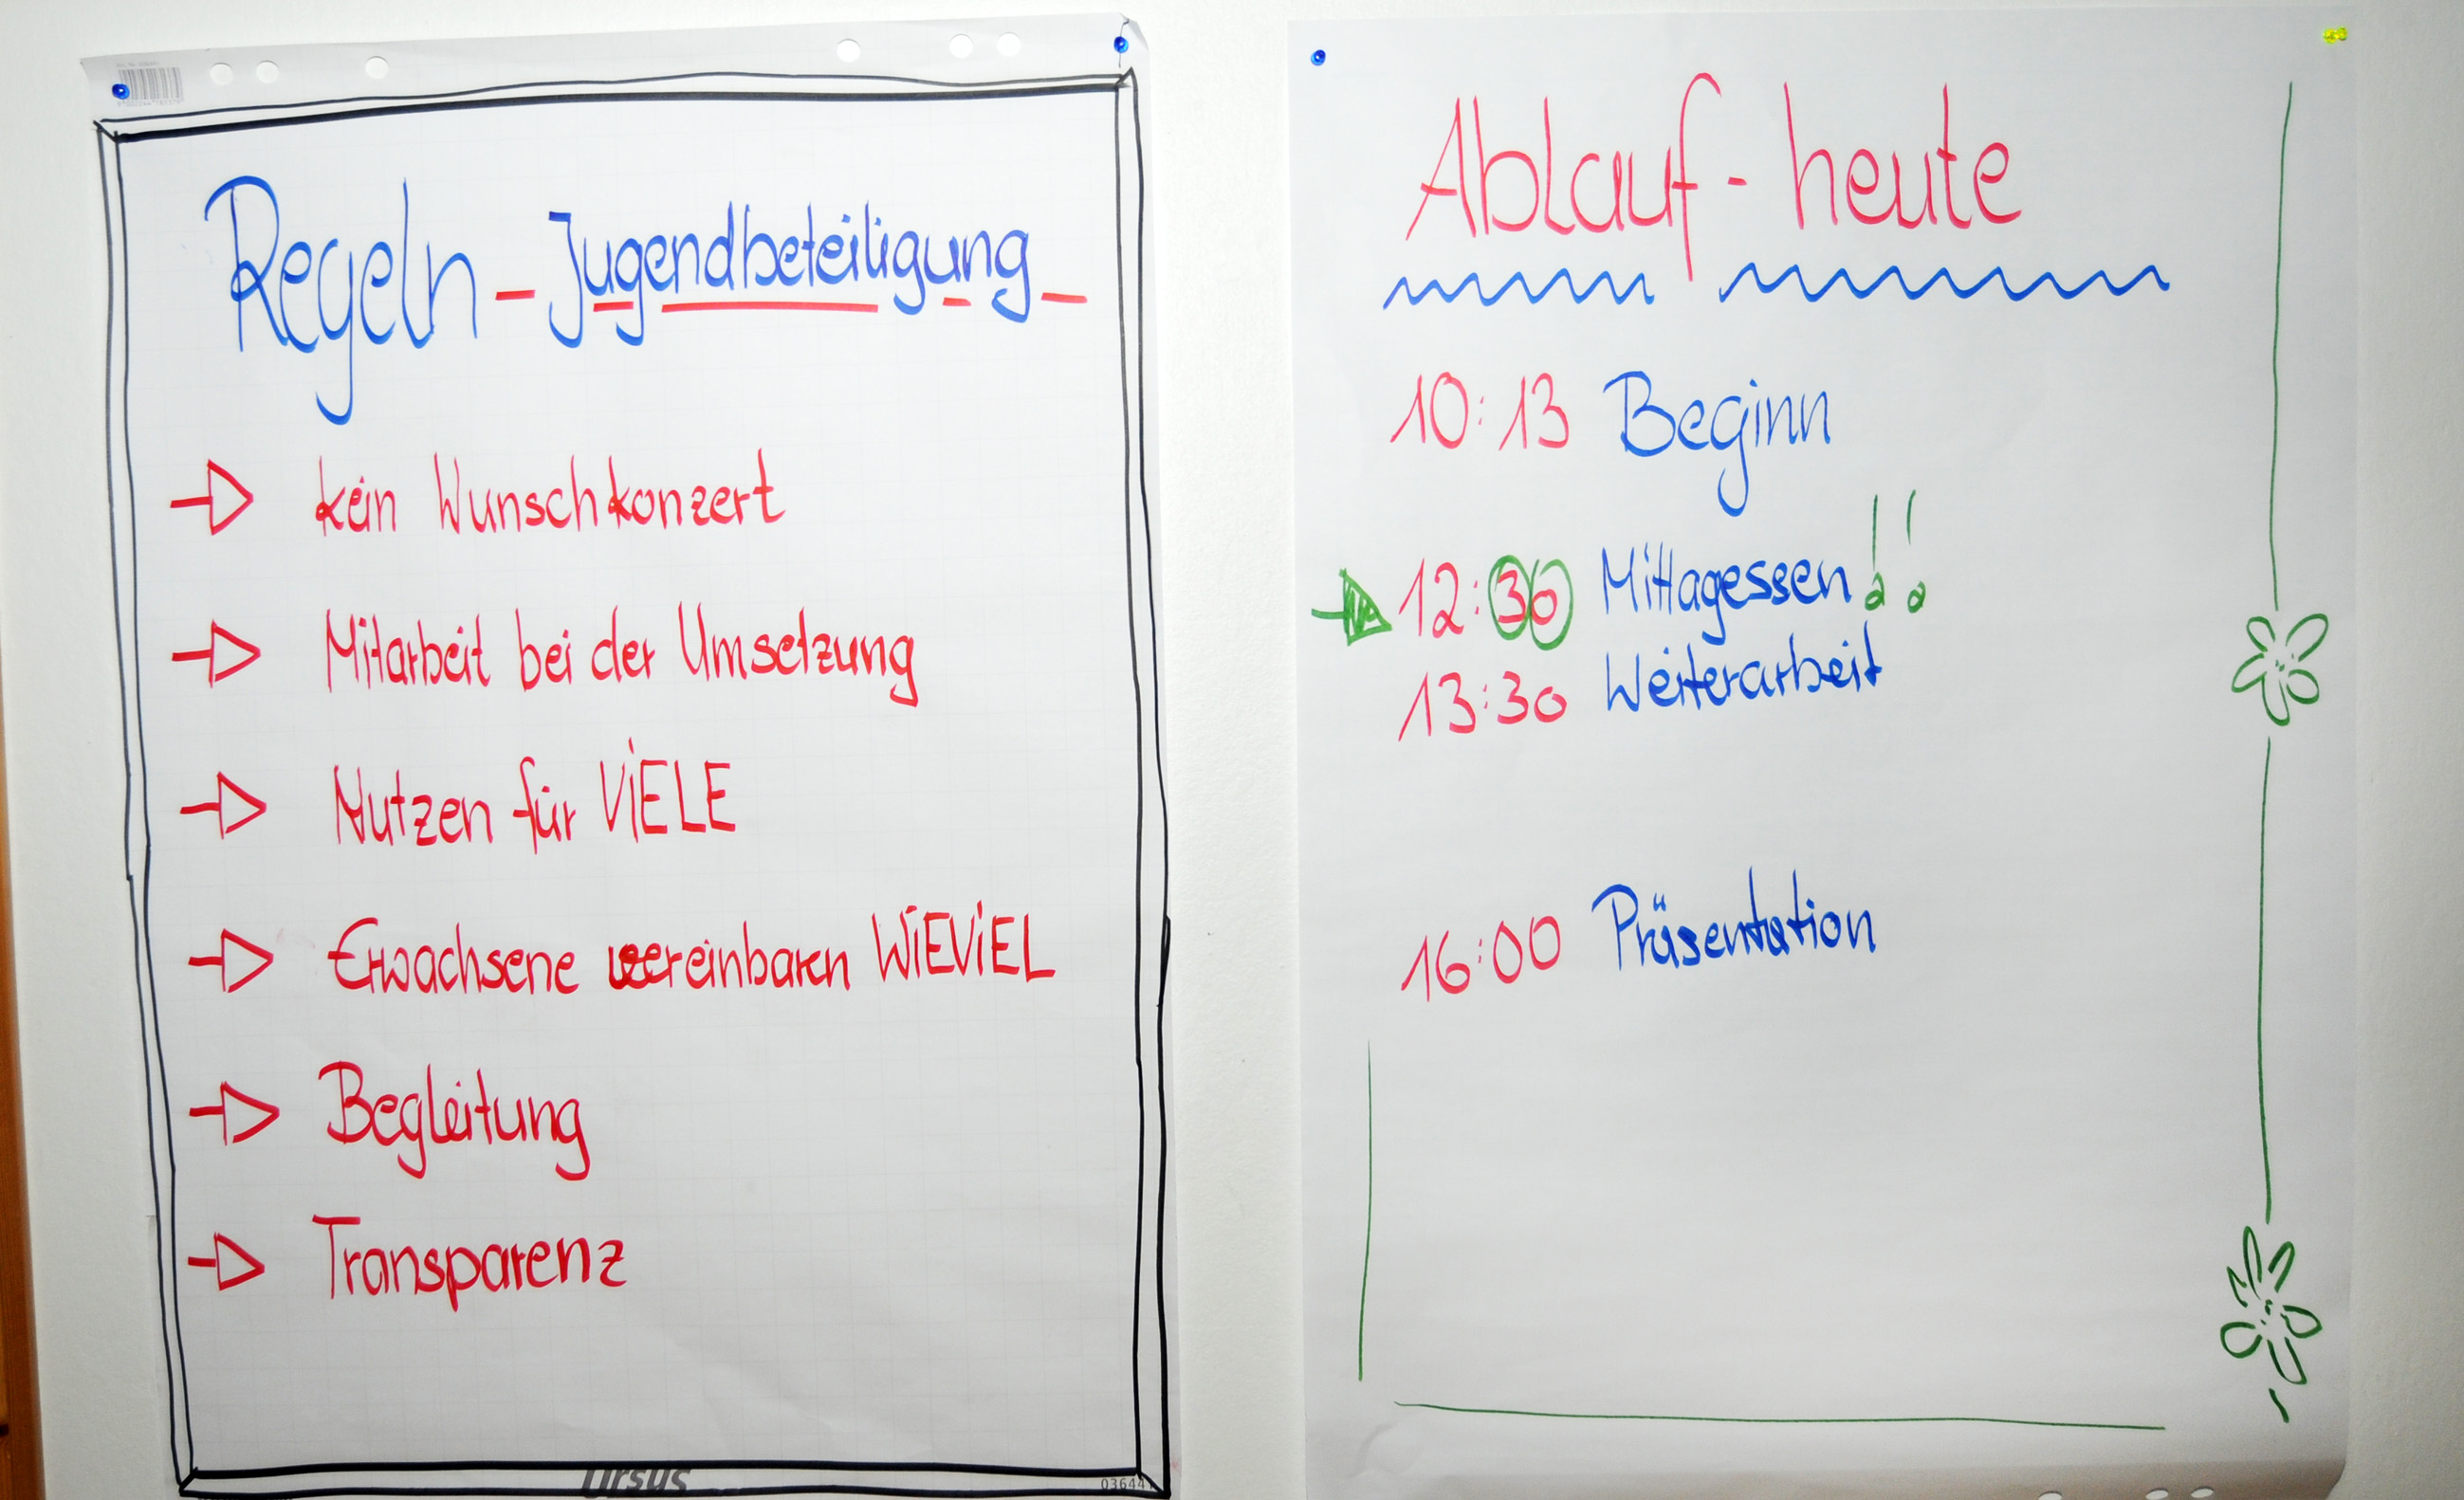 Regeln - Jugendbeteiligung
kein Wunschkonzert
Mitarbeit bei der Umsetzung
Nutzen für ViELE
Erwachsene vereinbaren WiEViEL
Begleitung
Transparenz
Ursus
03644
Ablauf - heute
10:13 Beginn
12:30 Mittagessen!!
13:30 Weiterarbeit
16:00 Präsentation